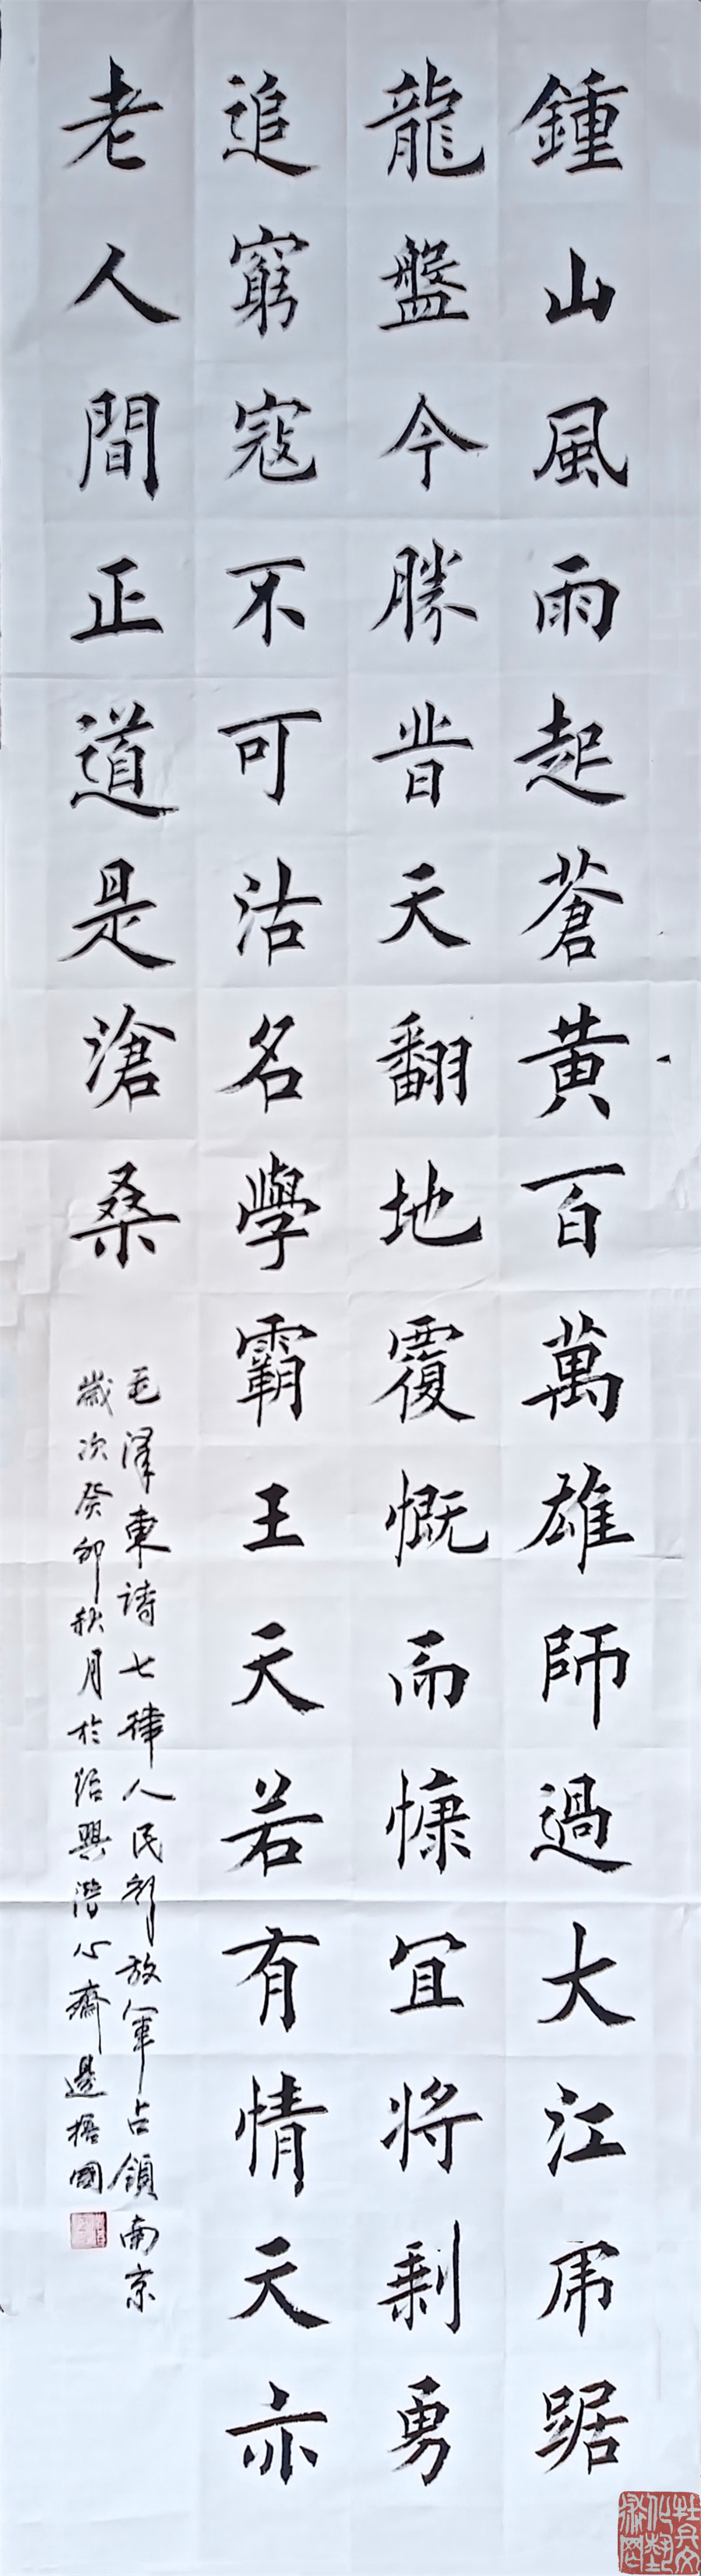 鍾山風雨起蒼黃百萬雄師過大江虎踞
龍盤今勝昔天翻地覆慨而慷宜將剩勇
追窮寇不可沽名學霸王天若有情天亦
老人間正道是滄桑
毛澤東詩七律人民解放軍占領南京
歲次癸卯秋月於紹興潛心齋邊梧國